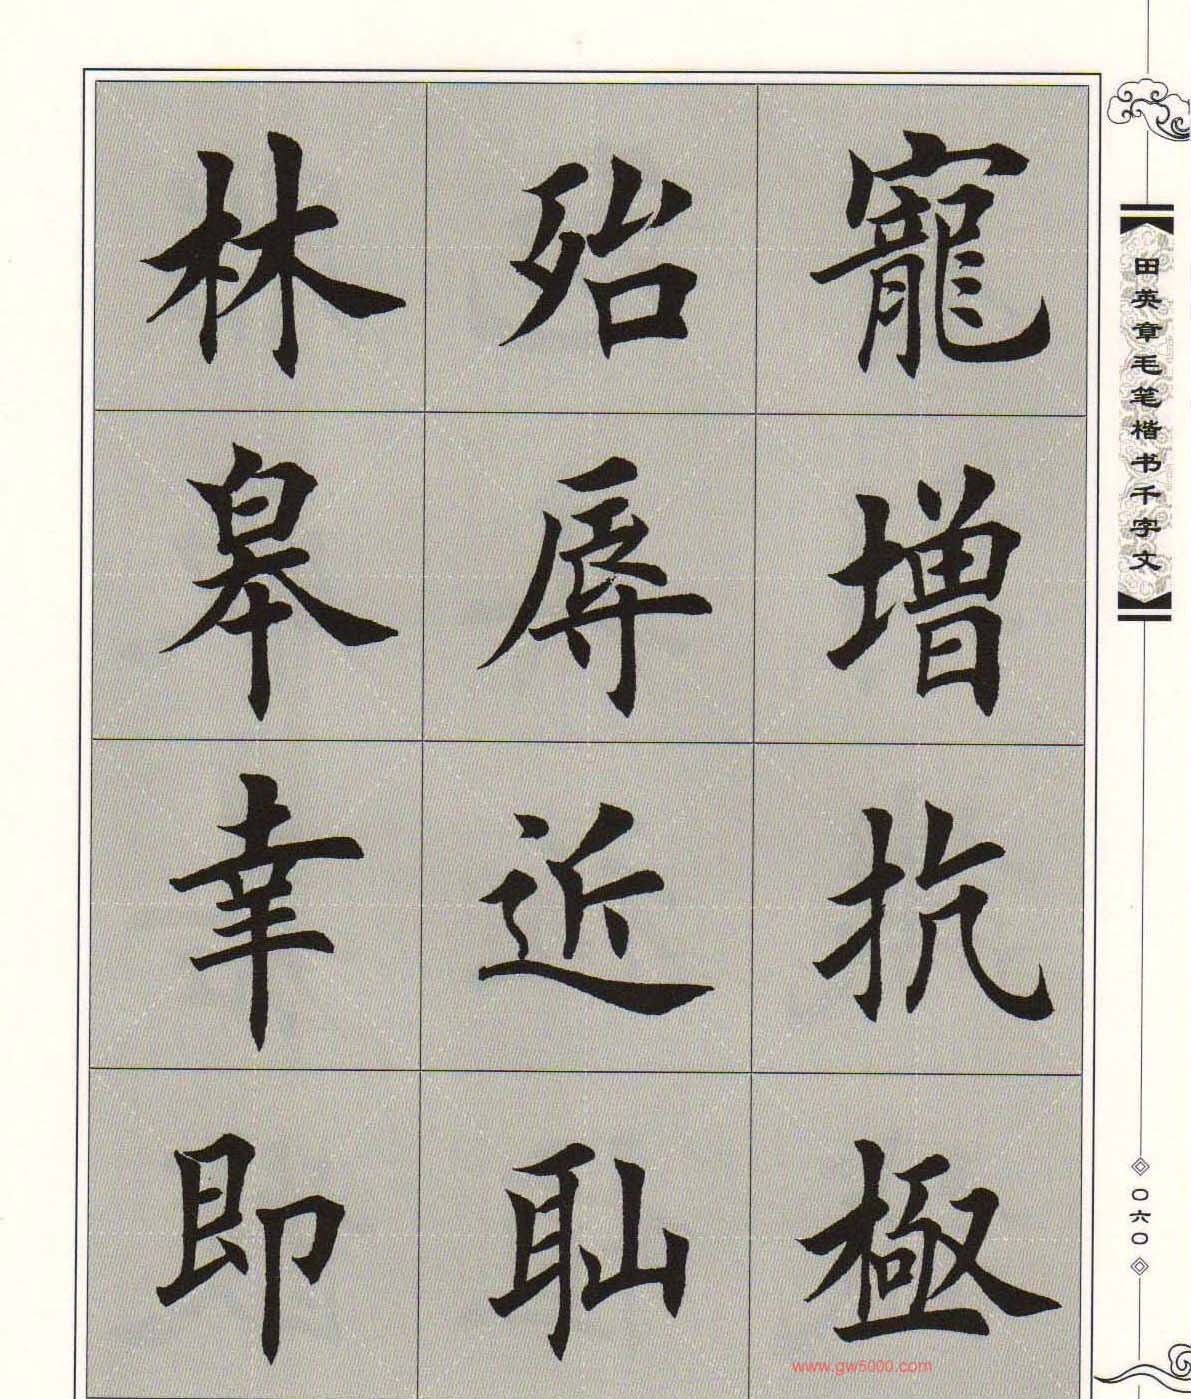 寵增抗極
殆辱近耻
林皋幸即
田英章毛笔楷书千字文
〇六〇
www.gw5000.com